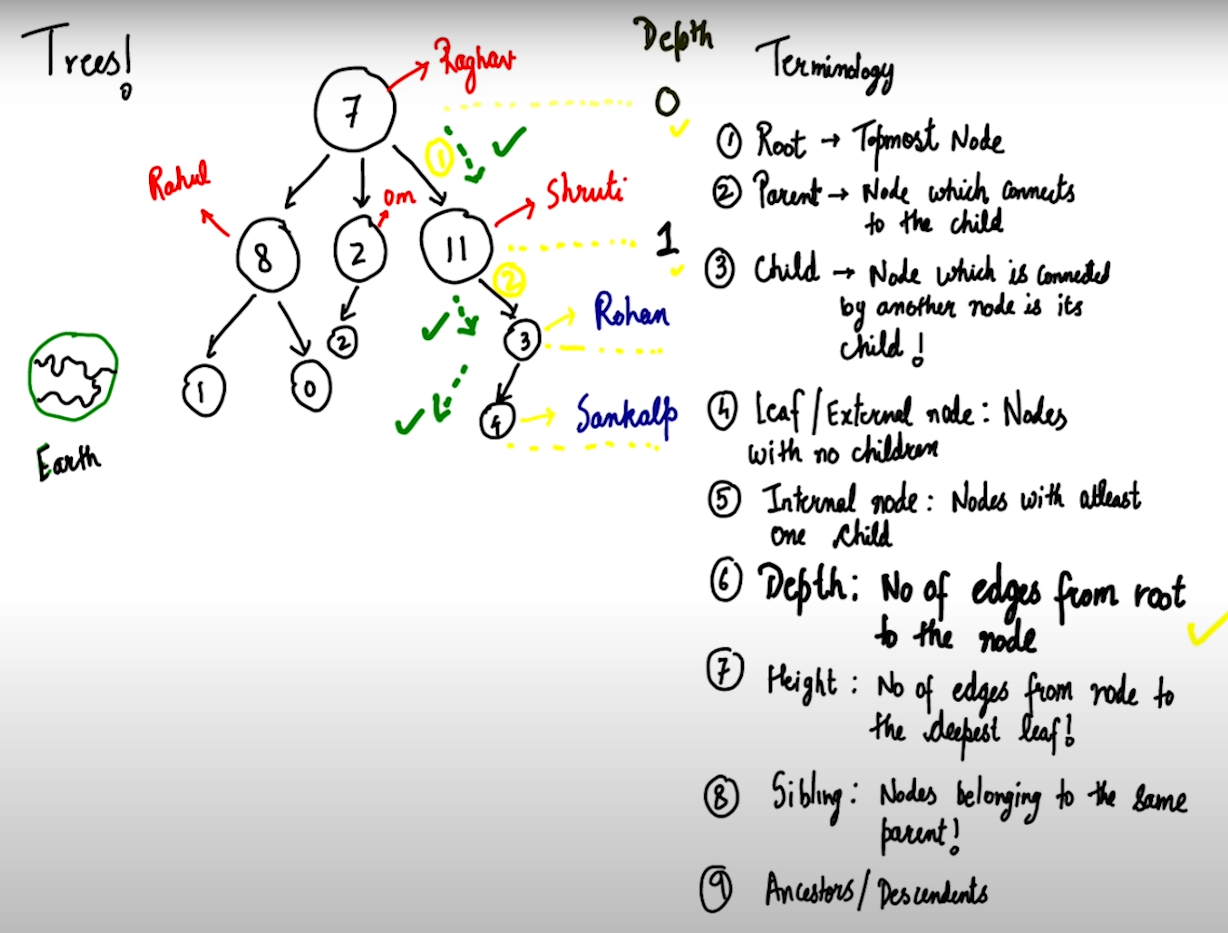 Trees!
Depth
Terminology
7
Raghav
0
1
Rahul
8
om
2
11
Shruti
1
2
1
0
2
3
Rohan
4
Sankalp
Earth
① Root → Topmost Node
② Parent → Node which connects
to the child
③ Child → Node which is connected
by another node is its
child!
④ Leaf / External node : Nodes
with no children
⑤ Internal node : Nodes with atleast
one child
⑥ Depth : No of edges from root
to the node
⑦ Height : No of edges from node to
the deepest leaf!
⑧ Sibling : Nodes belonging to the same
parent!
⑨ Ancestors / Descendents